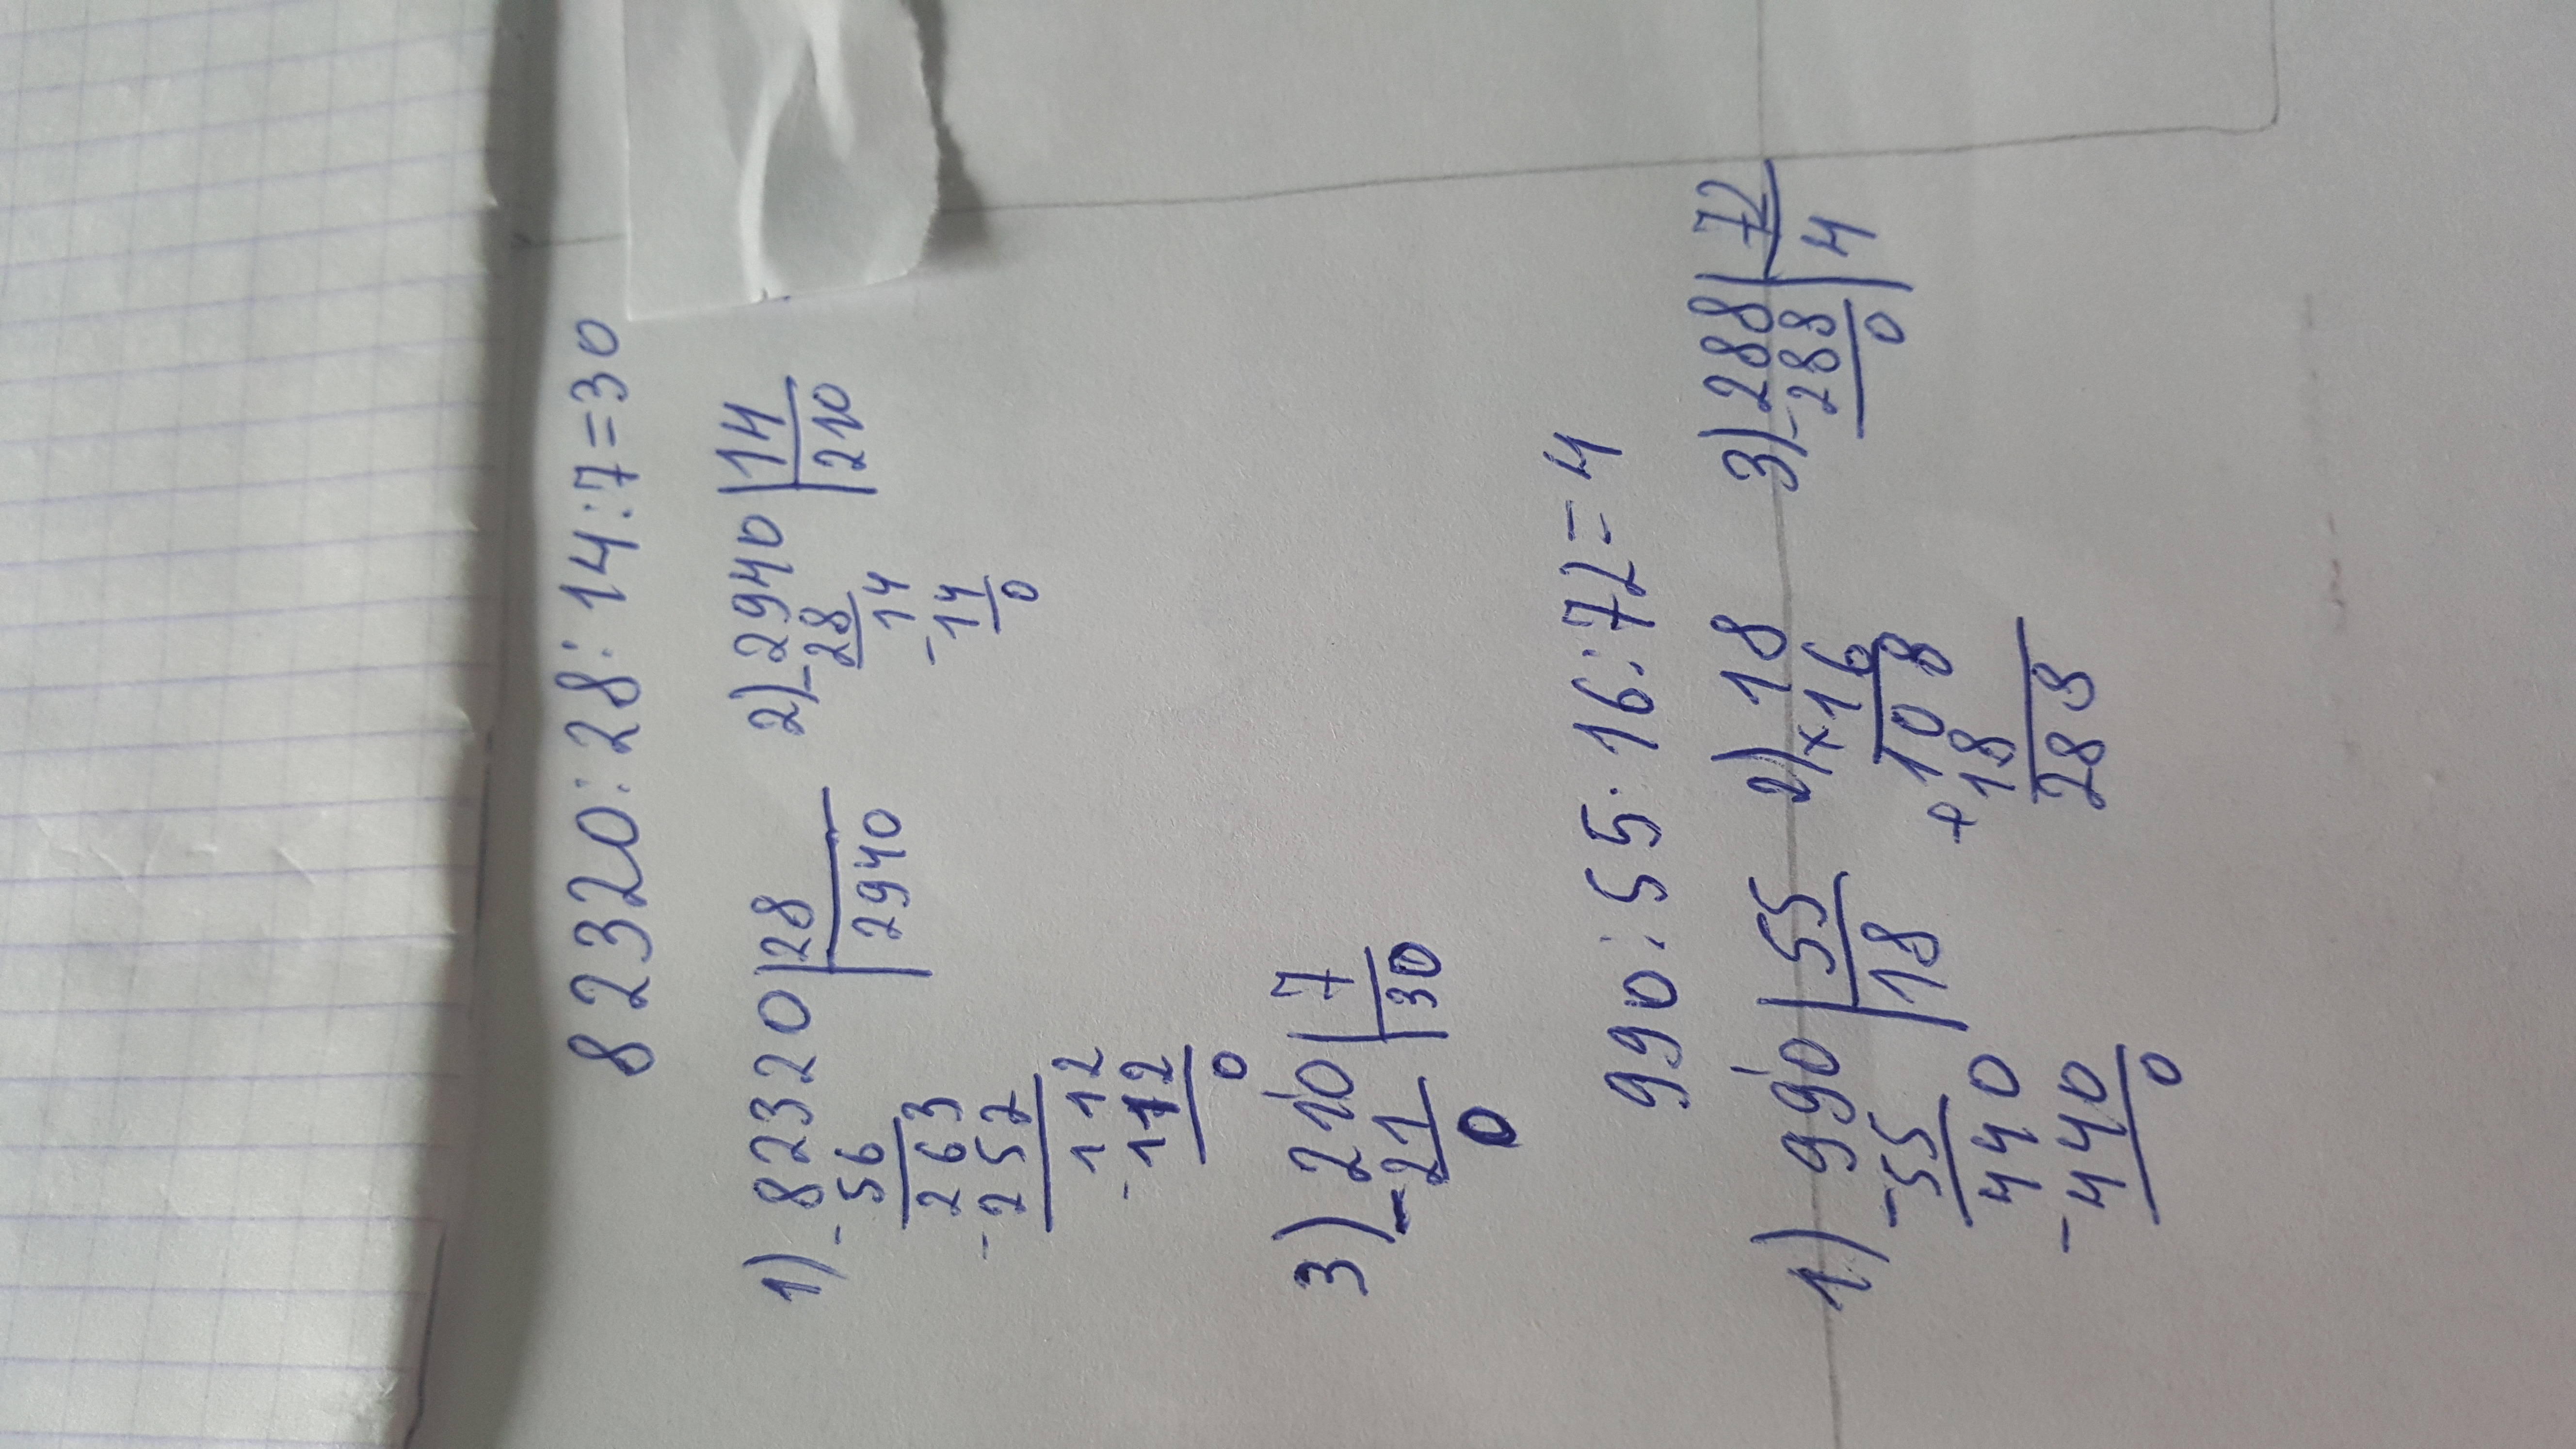 82320:28:14:7=30
1) 82320 | 28 2) 2940 | 14
- 56 | 2940 - 28 | 210
263 14
- 252 - 14
112 0
- 112
0
3) 210 | 7
- 21 | 30
0
990:55·16:72=4
1) 990 | 55 2) 18 3) 288 | 72
- 55 | 18 ×16 - 288 | 4
440 108 0
- 440 + 18
0 288